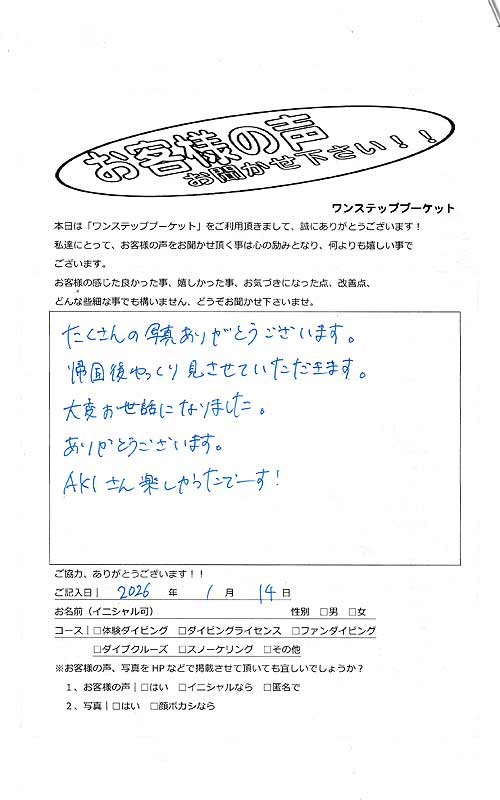 お客様の声
お聞かせ下さい！！
ワンステッププーケット
本日は「ワンステッププーケット」をご利用頂きまして、誠にありがとうございます！
私達にとって、お客様の声をお聞かせ頂く事は心の励みとなり、何よりも嬉しい事で
ございます。
お客様の感じた良かった事、嬉しかった事、お気づきになった点、改善点、
どんな些細な事でも構いません、どうぞお聞かせ下さいませ。
たくさんの写真ありがとうございます。
帰国後ゆっくり見させていただきます。
大変お世話になりました。
ありがとうございます。
AKIさん楽しかったでーす！
ご協力、ありがとうございます！！
ご記入日｜ 2026 年 1 月 14 日
お名前（イニシャル可） 性別 □男 □女
コース｜□体験ダイビング □ダイビングライセンス □ファンダイビング
□ダイブクルーズ □スノーケリング □その他
※お客様の声、写真をHPなどで掲載させて頂いても宜しいでしょうか？
1、お客様の声｜□はい □イニシャルなら □匿名で
2、写真｜□はい □顔ボカシなら